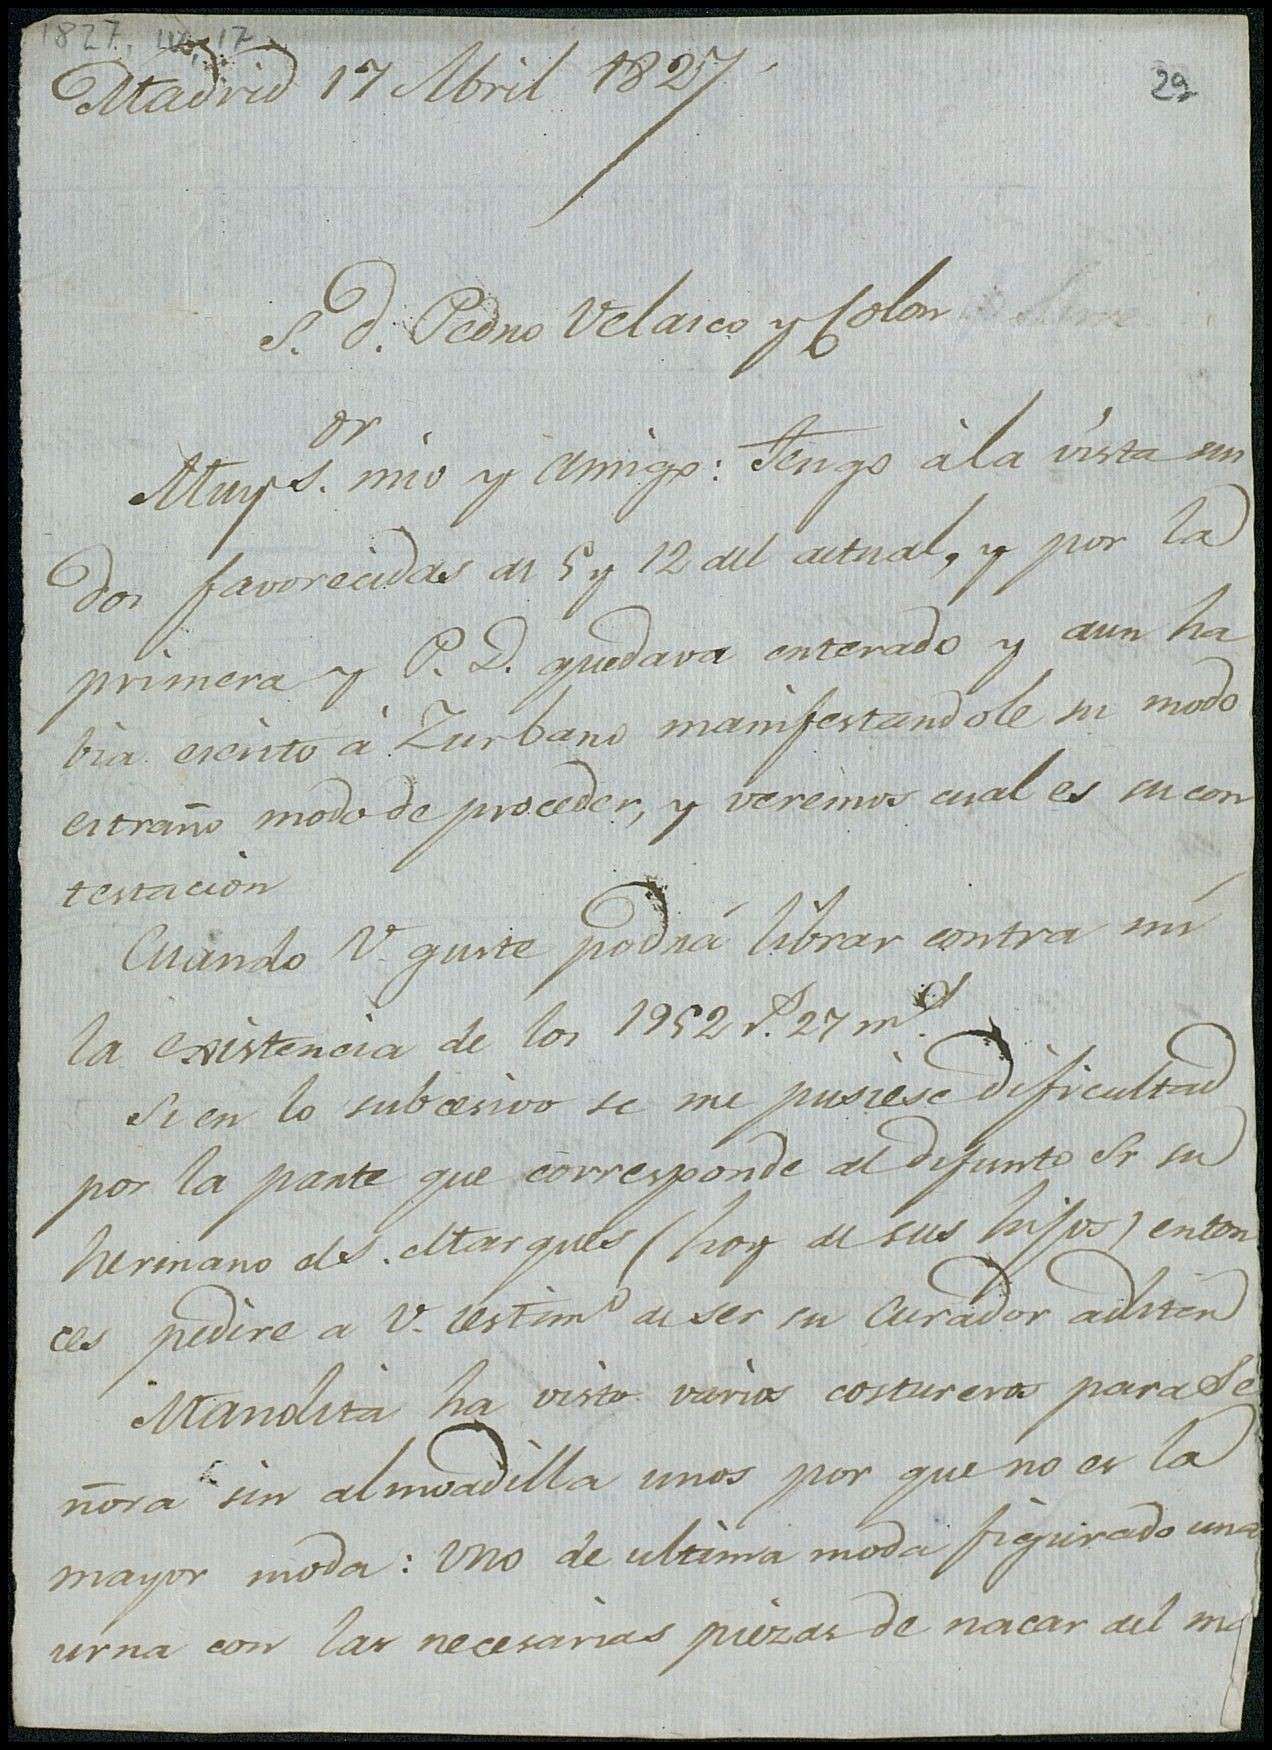 1827, IV, 17
Madrid 17 Abril 1827
29
S. D. Pedro Velasco y Colon
Muy S.or mio y amigo: Tengo á la vista sus
dos favorecidas de 5 y 12 del actual, y por la
primera y P. D. quedava enterado y aun ha
bia escrito á Zurbano manifestandole su modo
estraño modo de proceder, y veremos cual es su con
testacion
Cuando V. guste podrá librar contra mi
la existencia de los 1952 r.s 27 m.s
Si en lo subcesivo se me pusiese dificultad
por la parte que corresponde al difunto Sr su
hermano el S. Marques (hoy de sus hijos) enton
ces pedire a V. testim.o de ser su Curador
Manolita ha visto varios costureros para Se
ñora sin almoadilla unos por que no es la
mayor moda: uno de ultima moda figurado una
urna con las necesarias piezas de nacar del